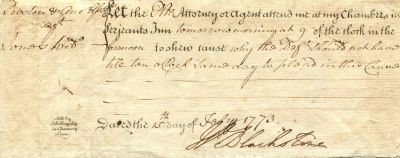 Let the Plts. Attorney or Agent attend me at my Chambers in
Serjeants Inn tomorrow morning at 9 of the Clock in the
forenoon to shew cause why the Deft. should not have
till ten o'Clock same day to plead in this Cause
agt.
Jones
Dated the 15th day of Feby. 1773.
W Blackstone
Sold by
in Chancery
Lane